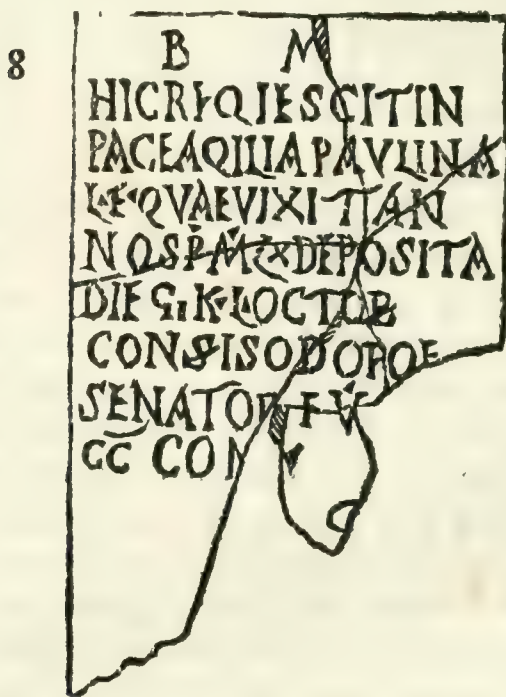 8
B M
HIC REQIESCIT IN
PACE AQILIA PAVLINA
L·F·QVAE VIXIT AN
NOS P̄·M̄· DEPOSITA
DIE Ϛı·K·L·OCTOB
CONS·ISODORO E
SENATOR
C̄C̄ CON